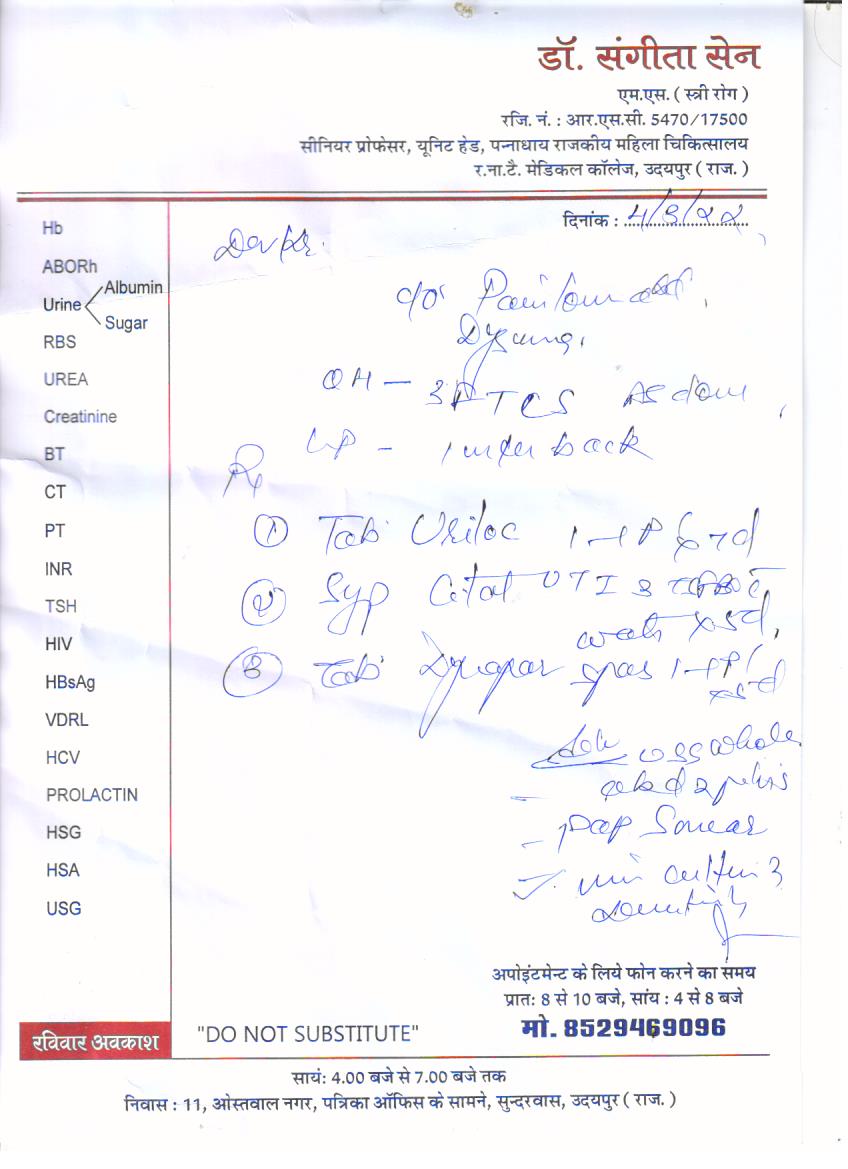 डॉ. संगीता सेन
एम.एस. ( स्त्री रोग )
रजि. नं. : आर.एस.सी. 5470/17500
सीनियर प्रोफेसर, यूनिट हेड, पन्नाधाय राजकीय महिला चिकित्सालय
र.ना.टै. मेडिकल कॉलेज, उदयपुर ( राज. )
दिनांक : 4/3/22
Hb
ABORh
Urine Albumin
Sugar
RBS
UREA
Creatinine
BT
CT
PT
INR
TSH
HIV
HBsAg
VDRL
HCV
PROLACTIN
HSG
HSA
USG
c/o Pain
OH - 3 TCS
LP - back
Rx
① Tab Uriloc 1-1 x 7d
② Syp UTI 3
x 5d,
③ Tab spas 1-1
x 5d
Adv USS whole
abd & pelvis
- Pap Smear
culture
अपोइंटमेन्ट के लिये फोन करने का समय
प्रातः 8 से 10 बजे, सांय : 4 से 8 बजे
मो. 8529469096
रविवार अवकाश
"DO NOT SUBSTITUTE"
सायं: 4.00 बजे से 7.00 बजे तक
निवास : 11, ओस्तवाल नगर, पत्रिका ऑफिस के सामने, सुन्दरवास, उदयपुर ( राज. )